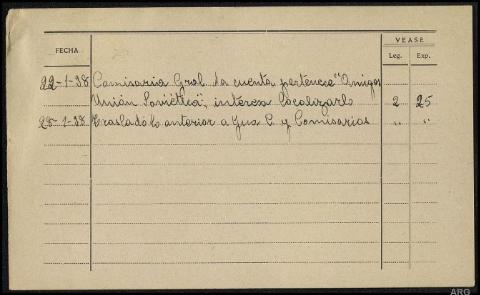 VEASE
FECHA Leg. Exp.
22-1-38 Comisaria Gral. da cuenta pertenece "Amigos
Unión Soviética", interesa localizarlo 2 25
25-1-38 Traslado lo anterior a y Comisarias " "
ARG